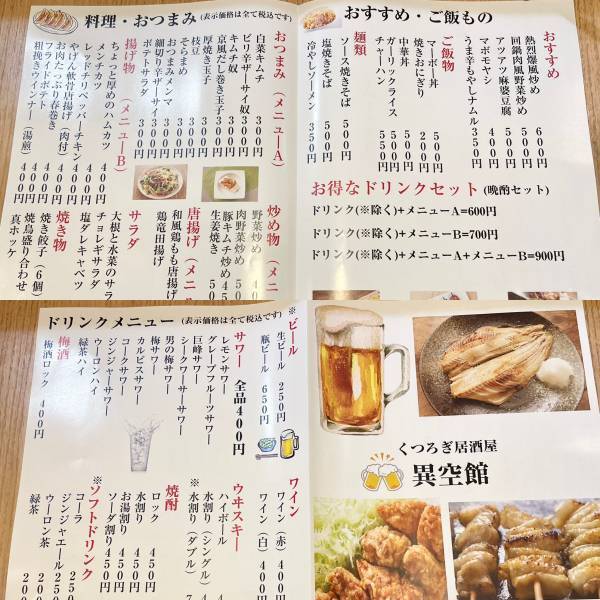 料理・おつまみ（表示価格は全て税込です）
おつまみ（メニューA）
白菜キムチ 300円
ピリ辛ザーサイ奴 300円
キムチ奴 300円
京風だし巻き玉子 300円
厚焼き玉子 300円
枝豆 300円
そらまめ 300円
おつまみメンマ 300円
細切り辛ザーサイ 300円
ポテトサラダ 300円
揚げ物（メニューB）
ちょっと厚めのハムカツ 400円
メンチカツ 400円
レッドチリペッパーチキン 400円
やげん軟骨唐揚げ 400円
お肉たっぷり春巻き（肉付） 400円
フライドポテト 400円
粗挽きウインナー（湯煎） 400円
炒め物（メニ
野菜炒め
肉野菜炒め 50
豚キムチ炒め 45
生姜焼き 50
唐揚げ（メニ
和風鶏もも唐揚げ
鶏竜田揚げ
サラダ
大根と水菜のサラ
チョレギサラダ
塩ダレキャベツ
焼き物
焼き餃子（6個）
焼鳥盛り合わせ
真ホッケ
おすすめ・ご飯もの
おすすめ
熱烈爆風炒め 600円
回鍋肉風野菜炒め 500円
アツアツ麻婆豆腐 500円
マボモヤシ 400円
うま辛もやしナムル 300円
ご飯物
マーボー丼 500円
焼きおにぎり 200円
中華丼 500円
ガーリックライス 500円
チャーハン 500円
麺類
ソース焼きそば 500円
塩焼きそば 500円
冷やしソーメン 350円
お得なドリンクセット（晩酌セット）
ドリンク（※除く）+メニューA=600円
ドリンク（※除く）+メニューB=700円
ドリンク（※除く）+メニューA+メニューB=900円
ドリンクメニュー（表示価格は全て税込です）
※ビール
生ビール 250円
瓶ビール 650円
サワー 全品400円
レモンサワー
グレープフルーツサワー
巨峰サワー
シークワーサーサワー
男の梅サワー
梅サワー
カルピスサワー
コークサワー
ジンジャーサワー
ウーロンハイ
緑茶ハイ
梅酒
梅酒ロック 400円
ワイン
ワイン（赤） 400円
ワイン（白） 400円
ウヰスキー
ハイボール
水割り（シングル）
※水割り（ダブル）
焼酎
ロック 450円
水割り 450円
お湯割り 450円
ソーダ割り 450円
※ソフトドリンク
コーラ
ジンジャエール 20
ウーロン茶 200
緑茶 200
くつろぎ居酒屋
異空館